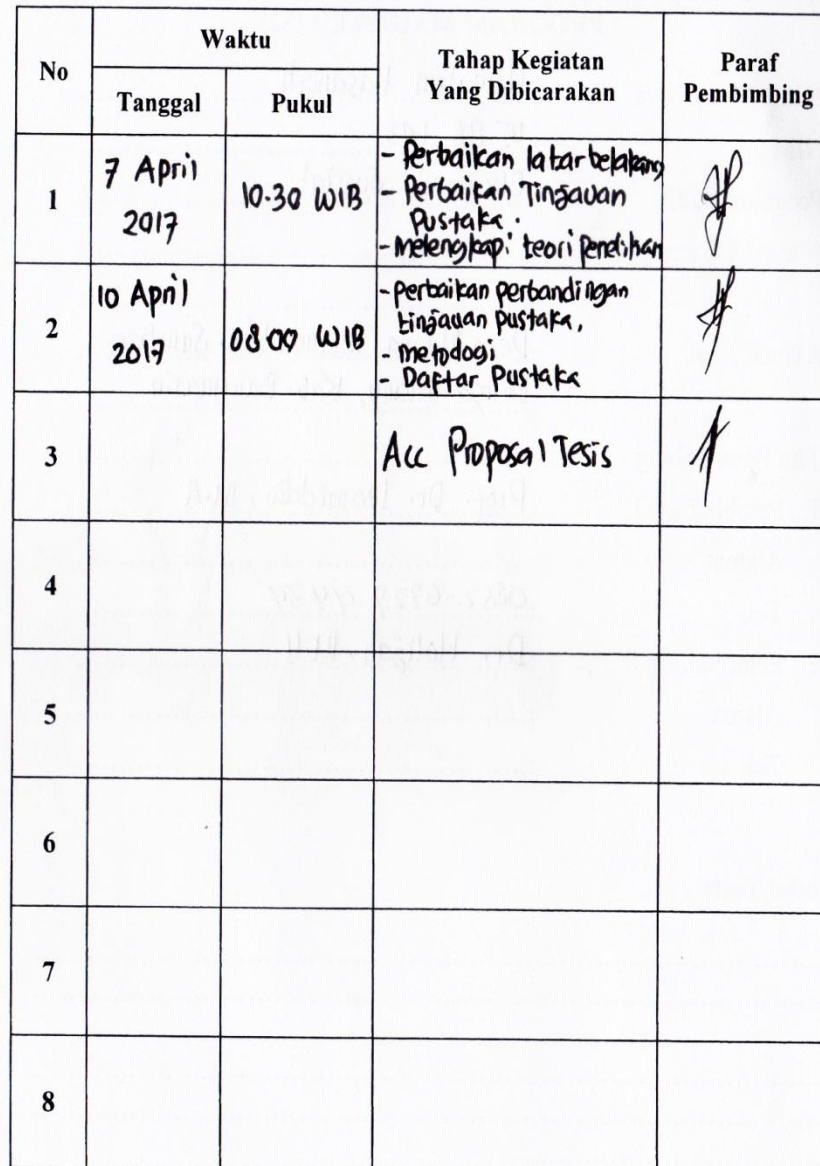 No
Waktu
Tanggal
Pukul
Tahap Kegiatan
Yang Dibicarakan
Paraf
Pembimbing
1
7 April
2017
10.30 WIB
- Perbaikan latar belakang
- Perbaikan Tinjauan
Pustaka.
- Melengkapi teori Pendihan
2
10 April
2017
08.00 WIB
- perbaikan perbandingan
tinjauan pustaka,
- metodogi
Daftar Pustaka
3
Acc Proposal Tesis
4
5
6
7
8